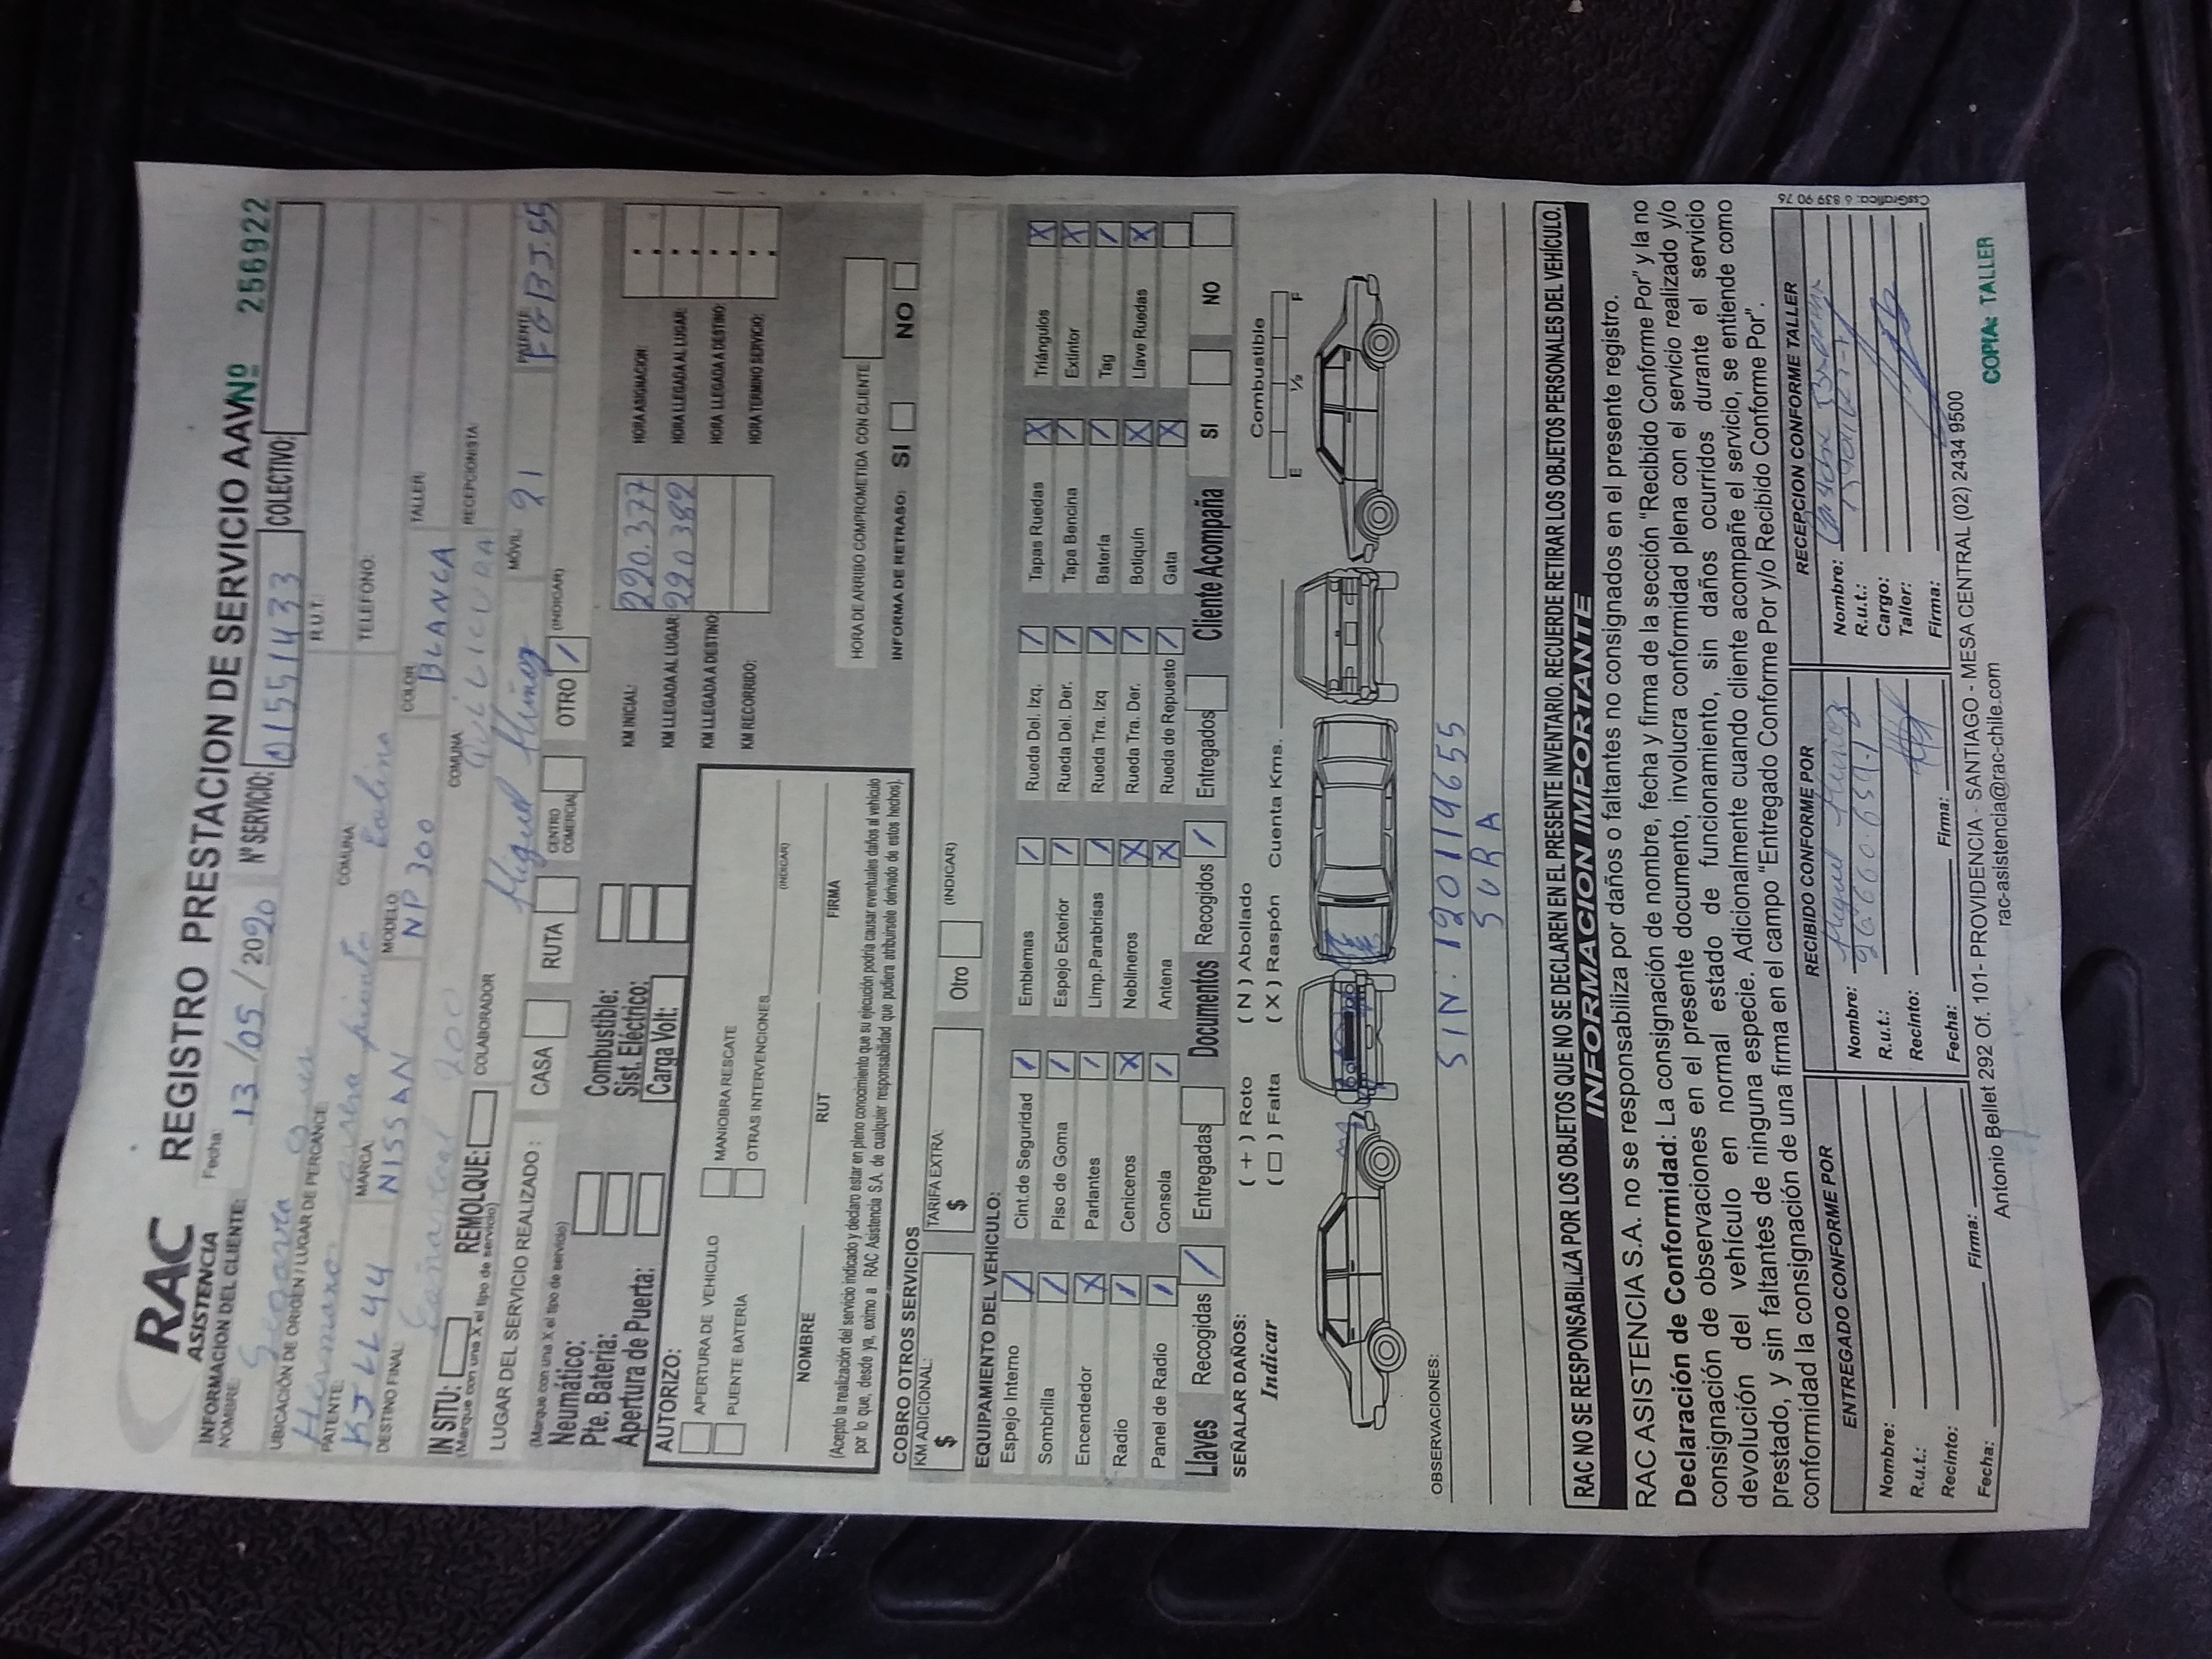 RAC
ASISTENCIA
REGISTRO PRESTACION DE SERVICIO AAV Nº 256922
INFORMACION DEL CLIENTE:
Fecha: 13 / 05 / 2020 Nº SERVICIO: 01551433 COLECTIVO:
NOMBRE: R.U.T.:
UBICACIÓN DE ORIGEN / LUGAR DE PERCANCE: COMUNA: Colina TELEFONO:
PATENTE: KJLL44 MARCA: NISSAN MODELO NP 300 COLOR BLANCA TALLER:
DESTINO FINAL: COMUNA QUILICURA RECEPCIONISTA:
IN SITU: REMOLQUE: COLABORADOR Miguel Muñoz MÓVIL: 91 PATENTE FGBJ.55
(Marque con una X el tipo de servicio)
LUGAR DEL SERVICIO REALIZADO: CASA RUTA CENTRO COMERCIAL OTRO / (INDICAR)
(Marque con una X el tipo de servicio)
Neumático: Combustible:
Pte. Batería: Sist. Eléctrico:
Apertura de Puerta: Carga Volt:
KM INICIAL: 220.377 HORA ASIGNACION:
KM LLEGADA AL LUGAR: 220389 HORA LLEGADA AL LUGAR:
KM LLEGADA A DESTINO: HORA LLEGADA A DESTINO:
KM RECORRIDO: HORA TERMINO SERVICIO:
AUTORIZO:
APERTURA DE VEHICULO MANIOBRA RESCATE
PUENTE BATERÍA OTRAS INTERVENCIONES (INDICAR)
NOMBRE RUT FIRMA
(Acepto la realización del servicio indicado y declaro estar en pleno conocimiento que su ejecución podría causar eventuales daños al vehículo
por lo que, desde ya, eximo a RAC Asistencia S.A. de cualquier responsabilidad que pudiera atribuírsele derivado de estos hechos).
HORA DE ARRIBO COMPROMETIDA CON CLIENTE
INFORMA DE RETRASO: SI NO
COBRO OTROS SERVICIOS
KM ADICIONAL: $ TARIFA EXTRA: $ Otro (INDICAR)
EQUIPAMIENTO DEL VEHICULO:
Espejo Interno / Cint.de Seguridad / Emblemas / Rueda Del. Izq. / Tapas Ruedas X Triángulos X
Sombrilla / Piso de Goma / Espejo Exterior / Rueda Del. Der. / Tapa Bencina / Extintor X
Encendedor X Parlantes / Limp.Parabrisas / Rueda Tra. Izq / Batería / Tag /
Radio / Ceniceros X Neblineros X Rueda Tra. Der. / Botiquín X Llave Ruedas X
Panel de Radio / Consola / Antena X Rueda de Repuesto / Gata X
Llaves Recogidas / Entregadas Documentos Recogidos / Entregados Cliente Acompaña SI NO
SEÑALAR DAÑOS: ( + ) Roto ( N ) Abollado
Indicar ( □ ) Falta ( X ) Raspón Cuenta Kms. Combustible E ½ F
OBSERVACIONES: SIN. 12019655
SURA
RAC NO SE RESPONSABILIZA POR LOS OBJETOS QUE NO SE DECLAREN EN EL PRESENTE INVENTARIO. RECUERDE RETIRAR LOS OBJETOS PERSONALES DEL VEHÍCULO.
INFORMACION IMPORTANTE
RAC ASISTENCIA S.A. no se responsabiliza por daños o faltantes no consignados en el presente registro.
Declaración de Conformidad: La consignación de nombre, fecha y firma de la sección "Recibido Conforme Por" y la no
consignación de observaciones en el presente documento, involucra conformidad plena con el servicio realizado y/o
devolución del vehículo en normal estado de funcionamiento, sin daños ocurridos durante el servicio
prestado, y sin faltantes de ninguna especie. Adicionalmente cuando cliente acompañe el servicio, se entiende como
conformidad la consignación de una firma en el campo "Entregado Conforme Por y/o Recibido Conforme Por".
ENTREGADO CONFORME POR
Nombre:
R.u.t.:
Recinto:
Fecha: Firma:
RECIBIDO CONFORME POR
Nombre: Miguel Muñoz
R.u.t.:
Recinto:
Fecha: Firma:
RECEPCION CONFORME TALLER
Nombre:
R.u.t.:
Cargo:
Taller:
Firma:
CssGrafica: 6 839 90 76
Antonio Bellet 292 Of. 101- PROVIDENCIA - SANTIAGO - MESA CENTRAL (02) 2434 9500
rac-asistencia@rac-chile.com
COPIA: TALLER